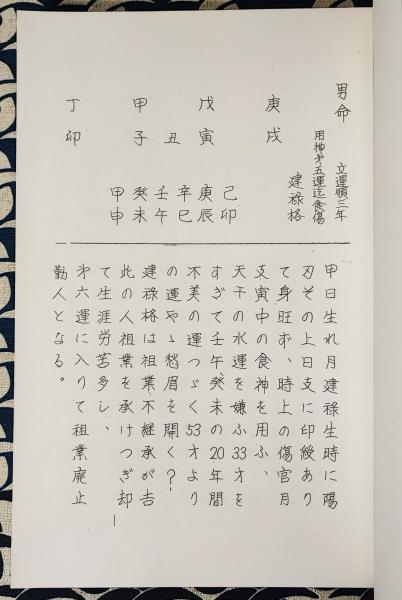 男命
立運順三年
用神才五運迄食傷
建祿格
庚戌
戊寅
丑
甲子
丁卯
己卯
庚辰
辛巳
壬午
癸未
甲申
甲日生れ月建祿生時に陽
刃その上日支に印綬あり
て身旺ず、時上の傷官月
支寅中の食神を用ふ、
天干の水運を嫌ふ33才を
すぎて壬午癸未の20年間
不美の運つゞく53才より
の運やゝ愁眉を開く?
建祿格は祖業不継承が吉
此の人祖業を承けつぎ却
て生涯労苦多し、
才六運に入りて祖業廃止
勤人となる。